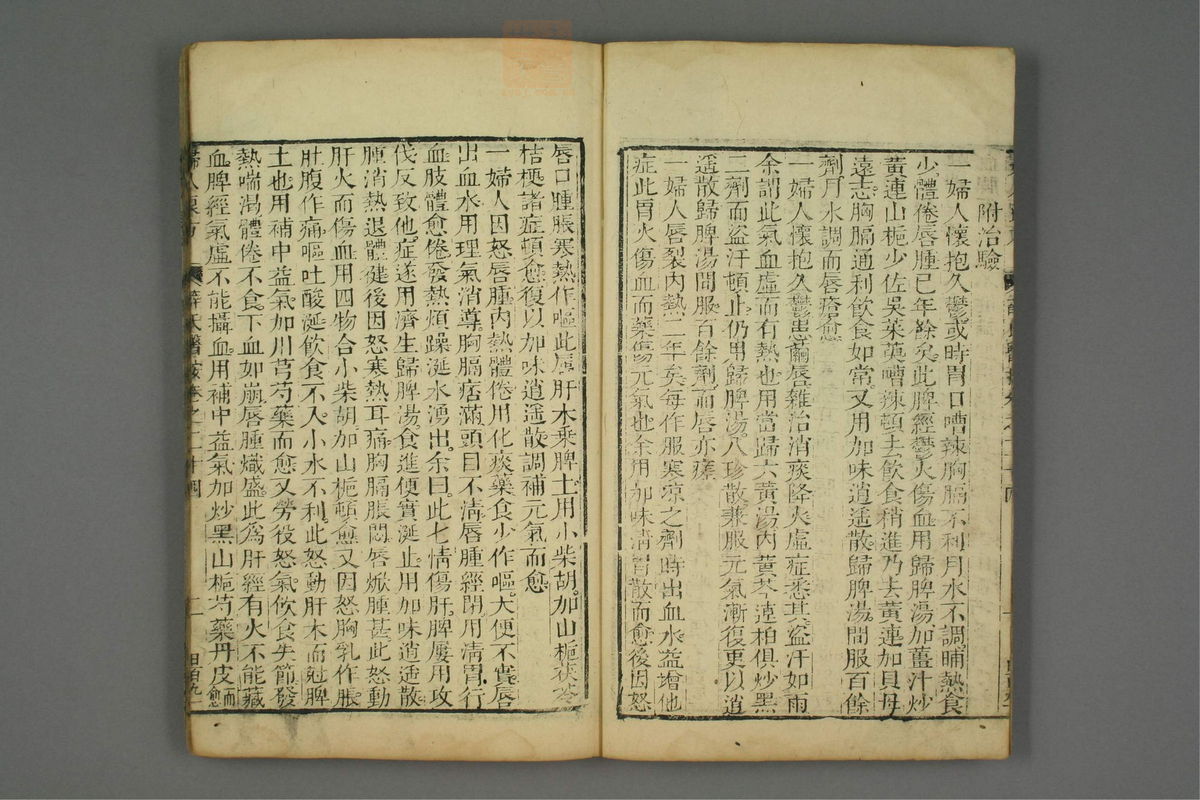 附治驗
一婦人懷抱久鬱或時胃口嘈辣胸膈不利月水不調晡熱食
少體倦唇腫已年餘矣此脾經鬱火傷血用歸脾湯加薑汁炒
黃連山梔少佐吳茱萸嘈辣頓去飲食稍進乃去黃連加貝母
遠志胸膈通利飲食如常又用加味逍遥散歸脾湯間服百餘
劑月水調而唇瘡愈
一婦人懷抱久鬱患繭唇雜治消痰降火虛症悉具盜汗如雨
余謂此氣血虛而有熱也用當歸六黃湯內黃芩連柏俱炒黑
二劑而盜汗頓止仍用歸脾湯八珍散兼服元氣漸復更以逍
遥散歸脾湯間服百餘劑而唇亦瘥
一婦人唇裂內熱二年矣每作服寒凉之劑時出血水益增他
症此胃火傷血而藥傷元氣也余用加味清胃散而愈後因怒
唇口腫脹寒熱作嘔此屬肝木乘脾土用小柴胡加山梔茯苓
桔梗諸症頓愈復以加味逍遥散調補元氣而愈
一婦人因怒唇腫內熱體倦用化痰藥食少作嘔大便不實唇
出血水用理氣消導胸膈痞滿頭目不清唇腫經閉用清胃行
血肢體愈倦發熱煩躁涎水湧出余曰此七情傷肝脾屢用攻
伐反致他症遂用濟生歸脾湯食進便實涎止用加味逍遥散
腫消熱退體健後因怒寒熱耳痛胸膈脹悶唇焮腫甚此怒動
肝火而傷血用四物合小柴胡加山梔頓愈又因怒胸乳作脹
肚腹作痛嘔吐酸涎飲食不入小水不利此怒動肝木而尅脾
土也用補中益氣加川芎芍藥而愈又勞役怒氣飲食失節發
熱喘渴體倦不食下血如崩唇腫熾盛此爲肝經有火不能藏
血脾經氣虛不能攝血用補中益氣加炒黑山梔芍藥丹皮而愈
婦人良方
薛氏醫按卷之二十四